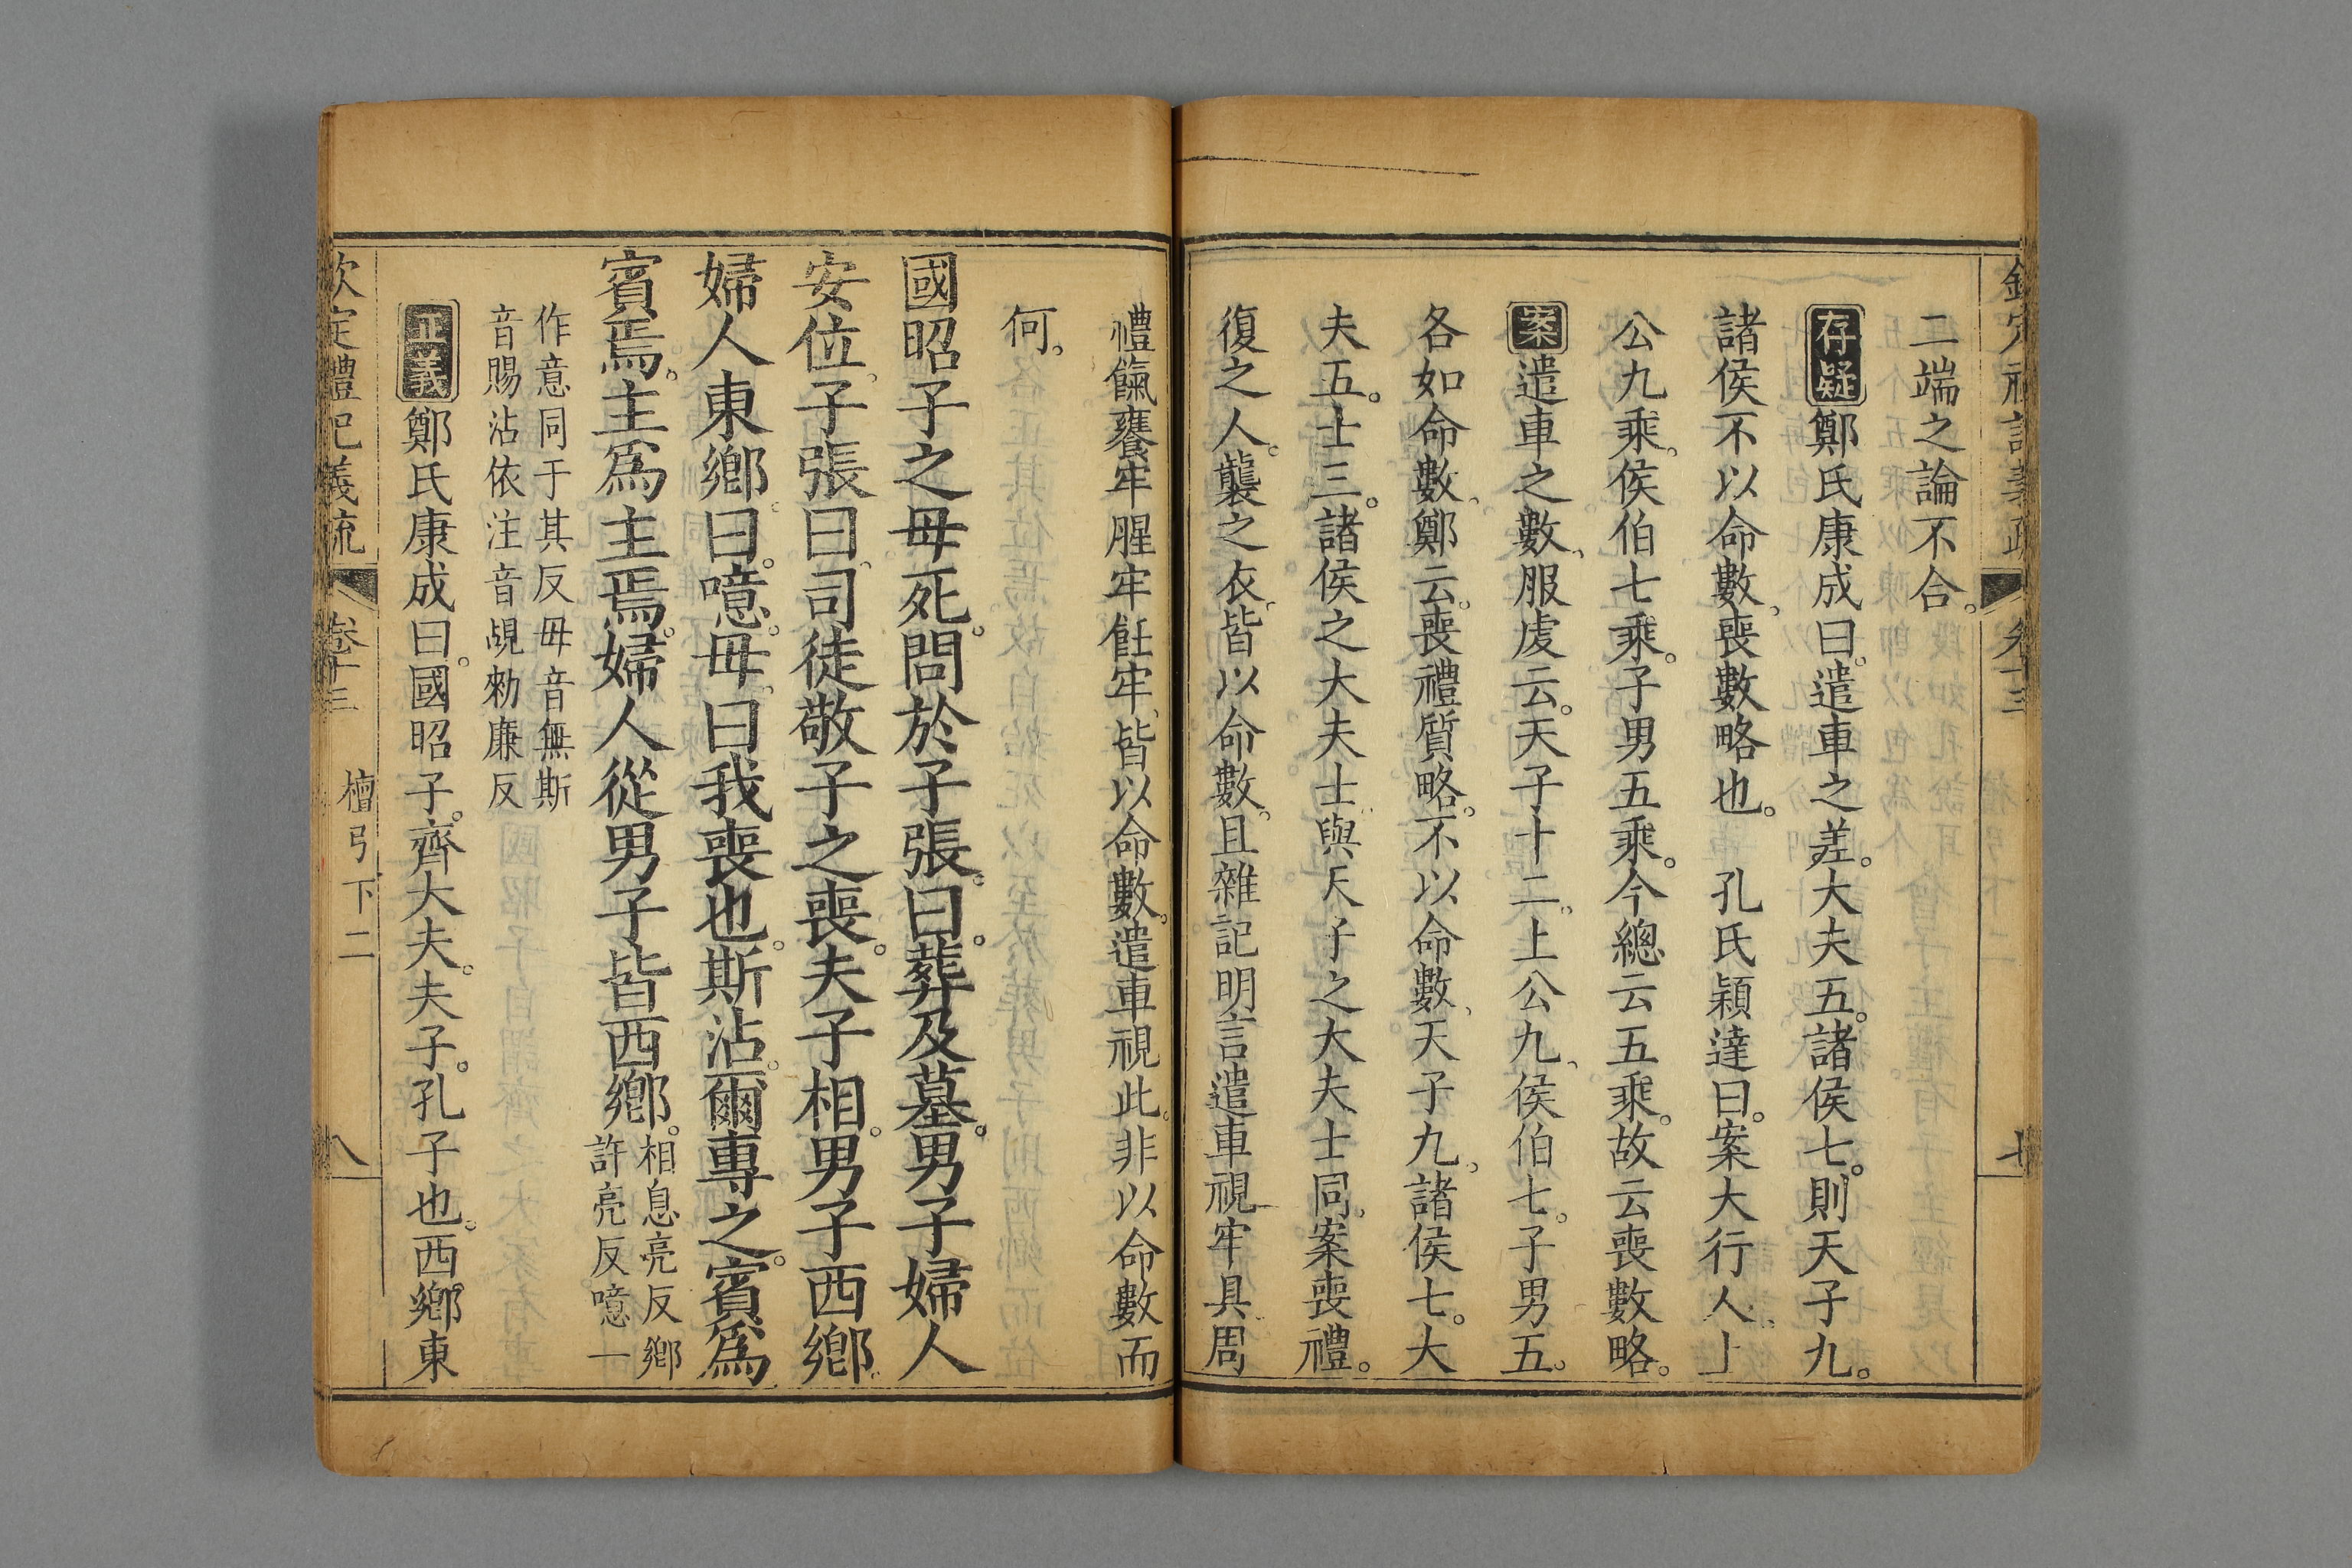 二端之論不合。
存疑鄭氏康成曰。遣車之差。大夫五。諸侯七。則天子九。
諸侯不以命數、喪數略也。　孔氏穎達曰。案大行人、上
公九乘、侯伯七乘。子男五乘。今總云五乘。故云喪數略。
案遣車之數、服虔云。天子十二、上公九、侯伯七。子男五。
各如命數、鄭云。喪禮質略。不以命數、天子九、諸侯七。大
夫五。士三。諸侯之大夫士與天子之大夫士同。案喪禮。
復之人。襲之衣、皆以命數。且雜記明言遣車視牢具、周
禮餼饔牢腥牢飪牢、皆以命數。遣車視此。非以命數而
何。
國昭子之母死。問於子張。曰。葬及墓。男子婦人
安位、子張曰、司徒敬子之喪。夫子相。男子西鄉、
婦人東鄉。曰。噫。毋、曰我喪也。斯沾。爾專之。賓爲
賓焉。主爲主焉。婦人從男子皆西鄉。相息亮反鄉
許亮反噫一
作意同于其反毋音無斯
音賜沾依注音覘勑廉反
正義鄭氏康成曰。國昭子。齊大夫。夫子。孔子也。西鄉東
欽定禮記義疏　卷十三　檀弓下二　八